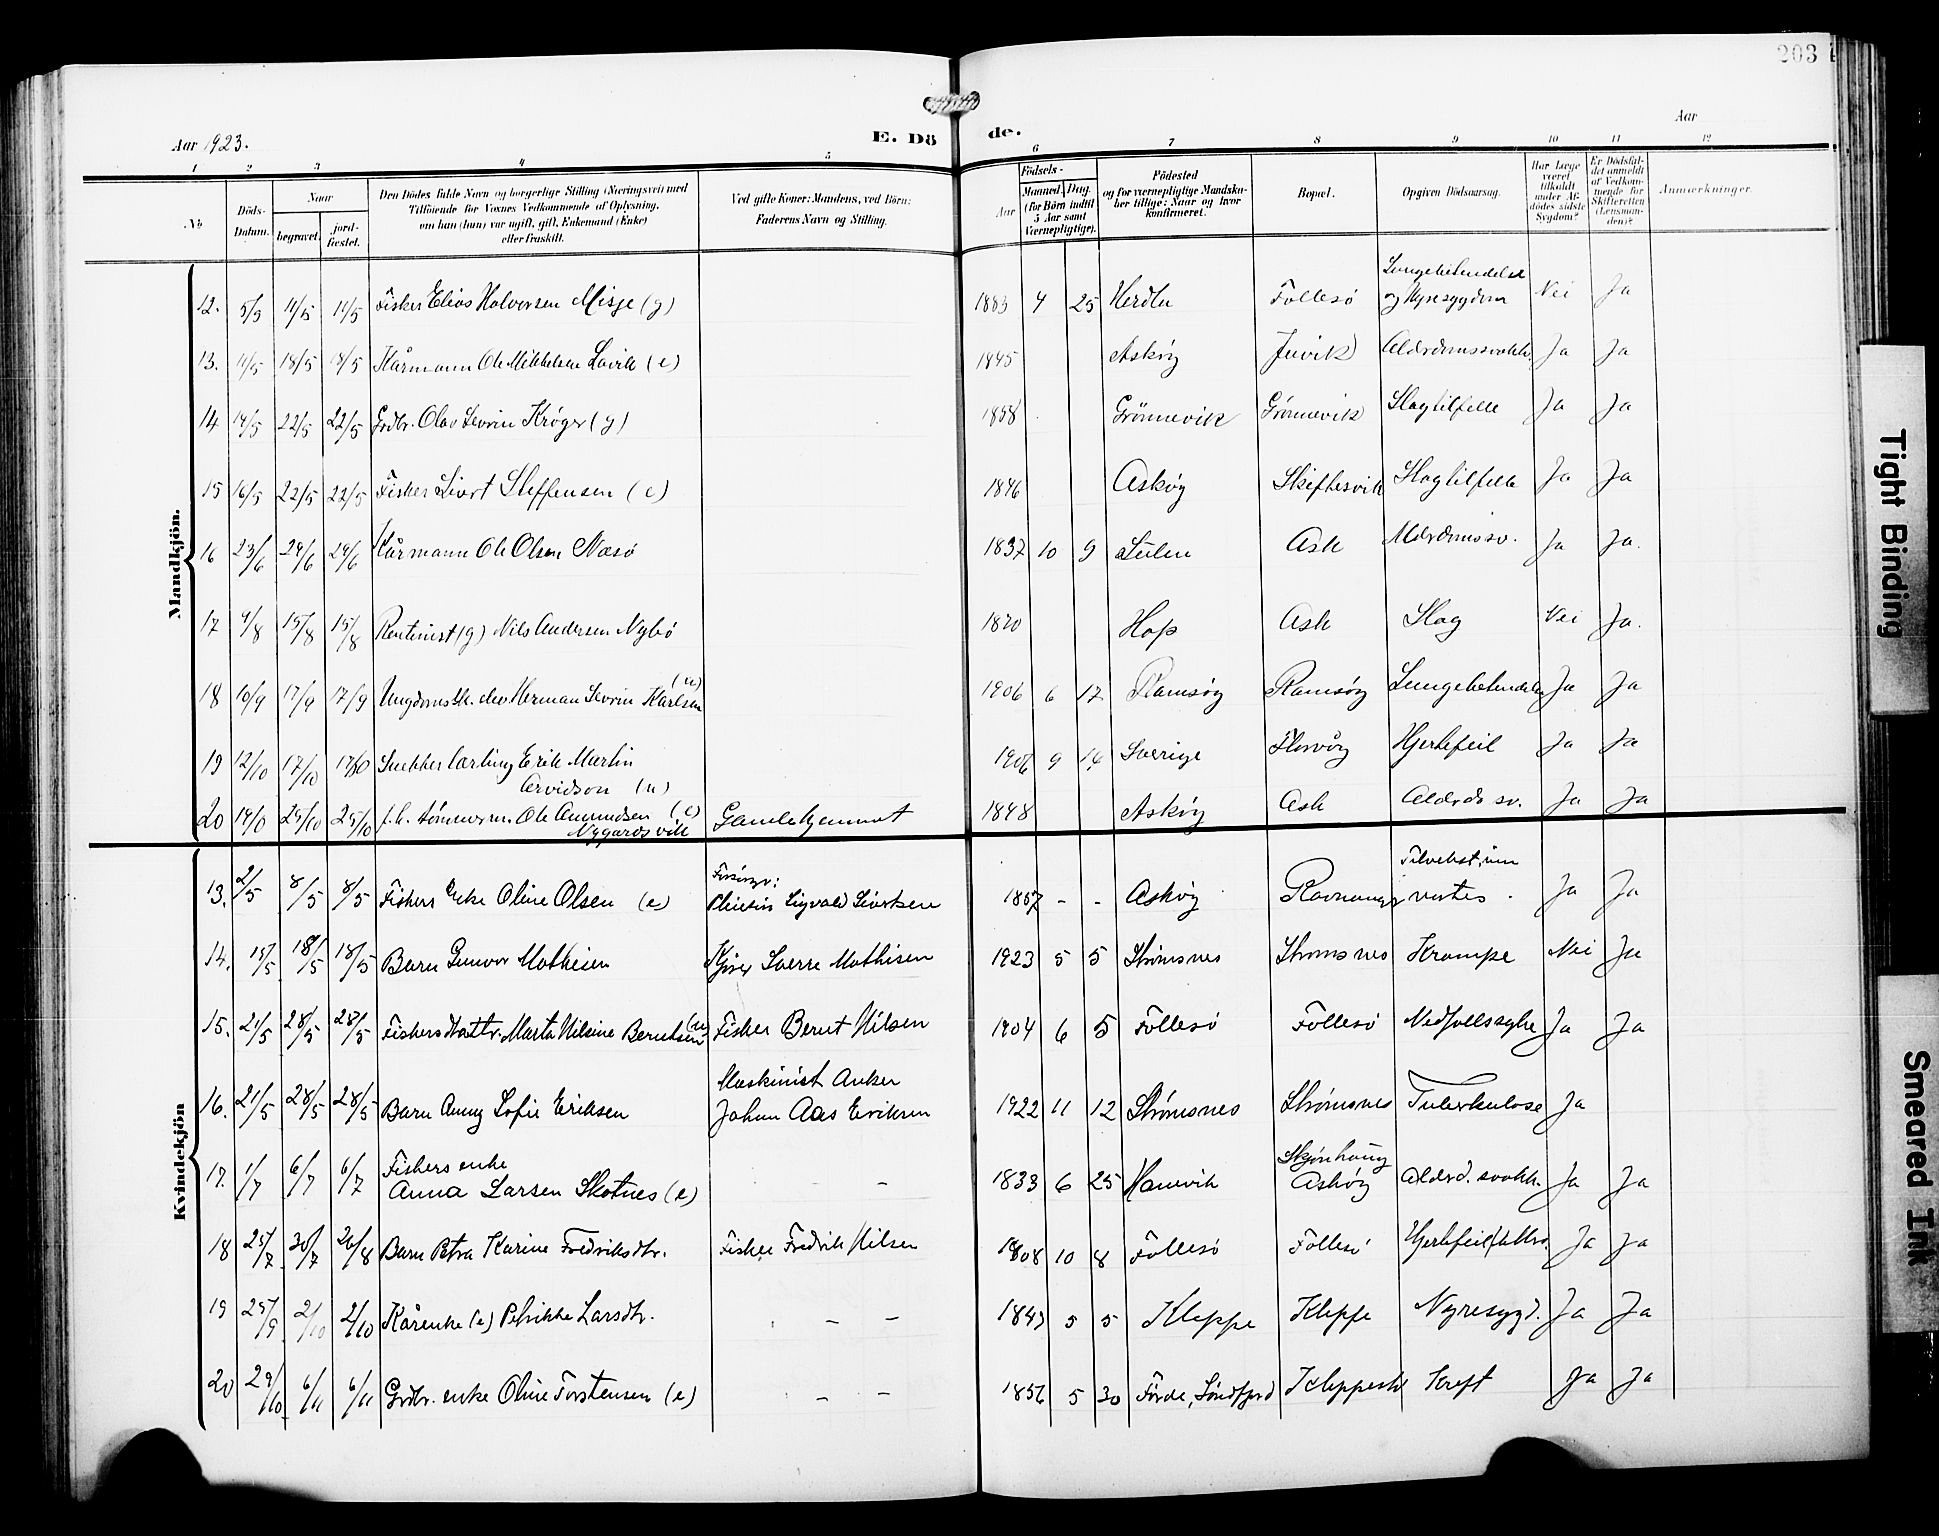 203
Aar 1923.
E. Dö
de.
Aar
1 2 3 4 5 6 7 8 9 10 11 12
No
Döds-Datum.
Naar
begravet.
jord-fæstet.
Den Dödes fulde Navn og borgerlige Stilling (Næringsvei) med
Tilföiende for Voxnes Vedkommende af Oplysning,
om han (hun) var ugift, gift, Enkemand (Enke)
eller fraskilt.
Ved gifte Koner: Mandens, ved Börn:
Faderens Navn og Stilling.
Födsels-
Aar
Maaned. Dag.
(for Börn indtil
5 Aar samt
Værnepligtige).
Födested
og for værnepligtige Mandska-
ber tillige: Naar og hvor
konfirmeret.
Bopæl.
Opgiven Dödsaarsag.
Har Læge
været
tilkaldt
under Af-
dödes sidste
Sygdom?
Er Dödsfal-
det anmeldt
af Vedkom-
mende for
Skifteretten
(Lensman-
den)?
Anmærkninger.
Mandkjön.
12. 5/5 11/5 11/5 Fisker Elias Halvorsen Misje (g) 1883 4 25 Herdla Follesö Lungebetendelse og Nyresygdom Nei Ja
13. 11/5 18/5 18/5 Kårmann Ole Mikkelsen Lavik (e) 1845 Askøy Juvik Alderdomssvakh. Ja Ja
14 14/5 22/5 22/5 Grdbr. Olav Sevrin Krøger (g) 1858 Grønnevik Grønnevik Slagtilfelle Ja Ja
15 16/5 22/5 22/5 Fisker Sivert Steffensen (e) 1846 Askøy Skiftesvik Slagtilfelle Ja Ja
16 23/6 29/6 29/6 Kårmann Ole Olsen Næsö 1837 10 9 Sulen Ask Alderdomssv. Ja Ja.
17 9/8 15/8 15/8 Rentenist (g) Nils Andersen Nybö Hop Ask Slag Nei Ja.
18 10/9 17/9 17/9 Ungdomssk. elev Herman Sevrin Karlsen (u) 1906 6 17 Ramsøy Ramsøy Lungebetendelse Ja Ja
19 12/10 17/10 17/10 Snekkerlærling Erik Martin Arvidson (u) 1906 9 14 Sverige Florvåg Hjertefeil Ja Ja
20 19/10 25/10 25/10 f.h. tømmerm. Ole Amundsen Nygardsvik (e) Gamlehjemmet 1848 Askøy Ask Alderds sv. Ja Ja
Kvindekjön
13. 2/5 8/5 8/5 Fiskers Enke Oline Olsen (e) Sigvald Sivertsen 1857 - - Askøy Ravnanger Ja Ja
14. 15/5 18/5 18/5 Barn Gunvor Mathisen Sverre Mathisen 1923 5 5 Strømsnes Strømsnes Krampe Nei Ja
15. 21/5 28/5 28/5 Fiskers Marta Nilsine Berntsen (u) Fisker Bernt Nilsen 1904 6 5 Follesö Follesö Nedfallssyke Ja Ja
16. 21/5 28/5 28/5 Barn Anny Sofie Eriksen Maskinist Anker Johan Aas Eriksen 1922 11 12 Strømsnes Strømsnes Tuberkulose Ja
17. 1/7 6/7 6/7 Fiskers enke Anna Larsen Skotnes (e) - - 1833 6 25 Hanevik Skjønhaug Askøy Alderd. svakh. Ja Ja
18 25/7 30/7 26/8 Barn Petra Karine Fredriksdtr. Fisker Fredrik Nilsen 1908 10 8 Follesö Follesö Hjertefeil Ja Ja
19 25/9 2/10 2/10 Kårenke (e) Petrikke Larsdtr. - - 1843 5 5 Kleppe Kleppe Nyresygd. Ja Ja
20 29/10 6/11 6/11 Grdbr. enke Oline Torstensen (e) - - 1856 5 30 Førde, Søndfjord Kleppestø Kreft Ja Ja
Tight Binding
Smeared Ink